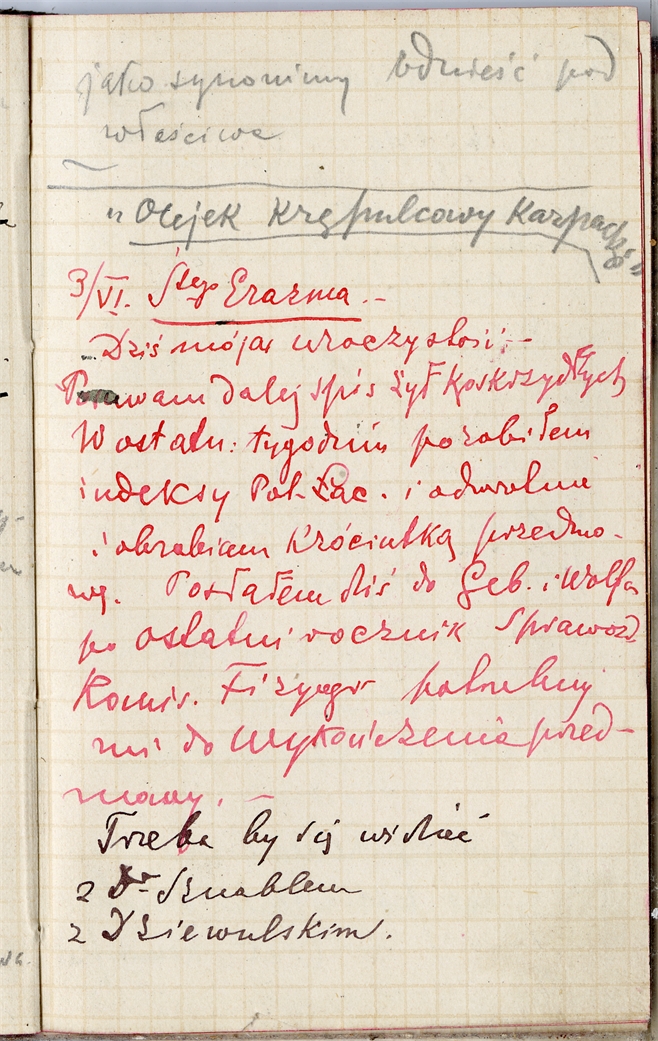 jako synonimy odnieść pod
właściwe
"Olejek Krępulcowy Karpacki"
3/VI. Śtego Erazma. –
Dziś moja uroczystość –
dalej spis Żył
W ostatn: tygodniu porobiłem
indeksy Pol-Łac. i odwrotnie
i obrabiam króciutką przedmo-
wę. Posłałem dziś do Geb. i Wolfa
po ostatni rocznik Sprawozd
Komis. Fizyogr potrzebny
mi do wykończenia przed-
mowy. –
Trzeba by się widzieć
z Dr Sznablem
z Dziewulskim.